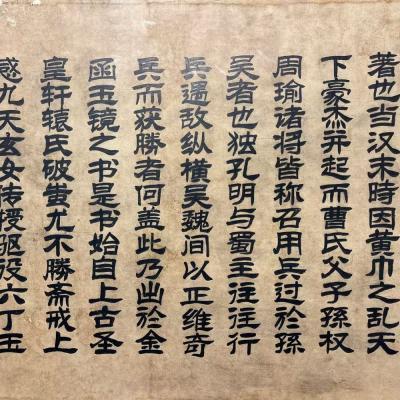 著也当汉末時因黄巾之乱天
下豪杰并起而曹氏父子孫权
周瑜诸将皆称召用兵过於孫
吴者也独孔明与蜀主往往行
兵遏敌纵横吴魏间以正维奇
兵而获勝者何盖此乃出於金
函玉镜之书是书始自上古圣
皇轩辕氏破蚩尤不勝斋戒上
感九天玄女传授驱役六丁玉